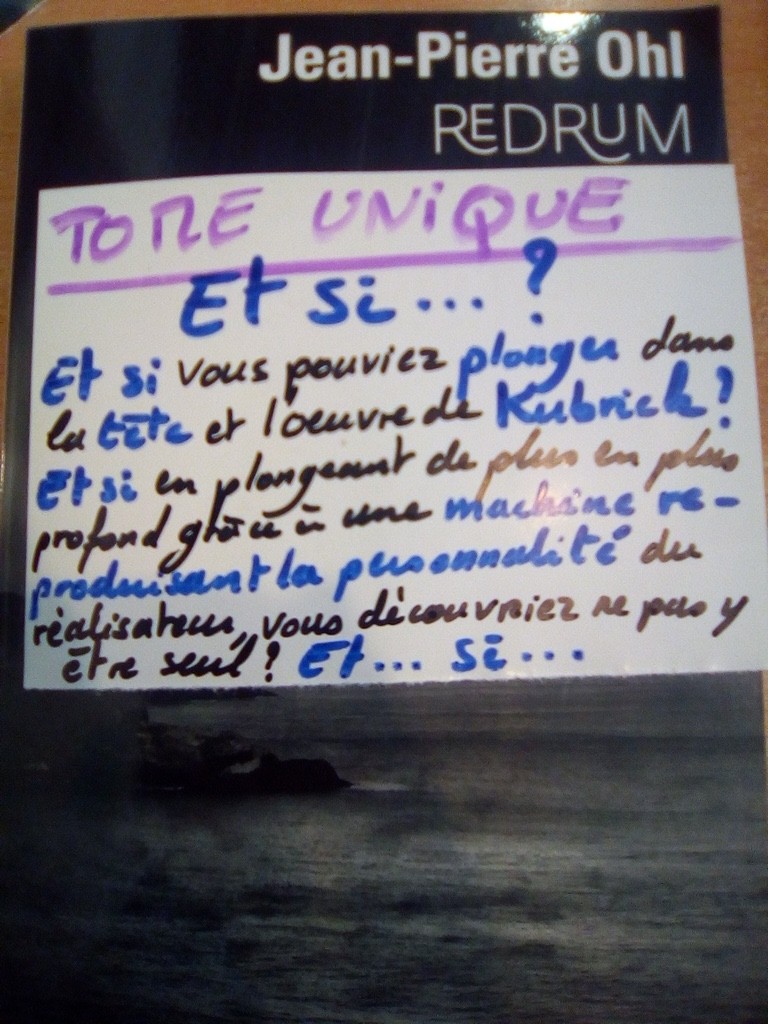 Jean-Pierre Ohl
REDRUM
TOME UNIQUE
Et si... ?
Et si vous pouviez plonger dans
la tête et l'oeuvre de Kubrick ?
Et si en plongeant de plus en plus
profond grâce à une machine re-
produisant la personnalité du
réalisateur, vous découvriez ne pas y
être seul ? Et... si...